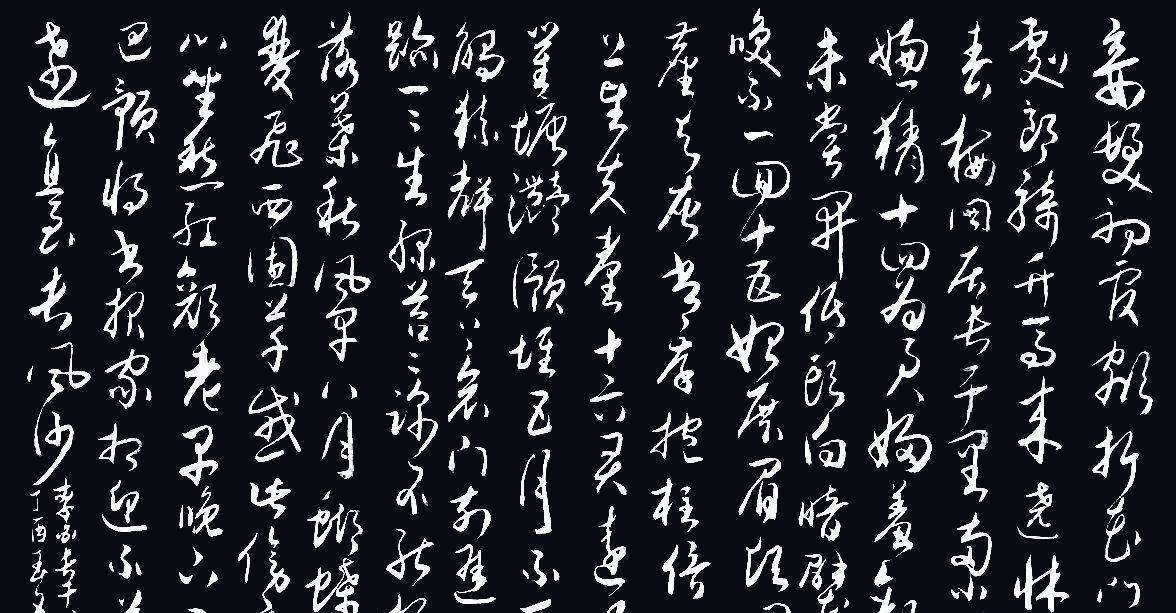 妾髮初覆額折花門
劇郎騎竹馬來遶牀
青梅同居長干里兩小
嫌猜十四為君婦羞顏
未嘗開低頭向暗壁
喚不一回十五始展眉願
塵與灰常存抱柱信
上望夫臺十六君遠
瞿塘灩澦堆五月不
觸猿聲天上哀門前遲
跡一〻生綠苔〻深不能
落葉秋風早八月蝴蝶
雙飛西園草感此傷
心坐愁紅顏老早晚下
巴預將書報家相迎不道
遠直至長風沙
李白長干
丁酉